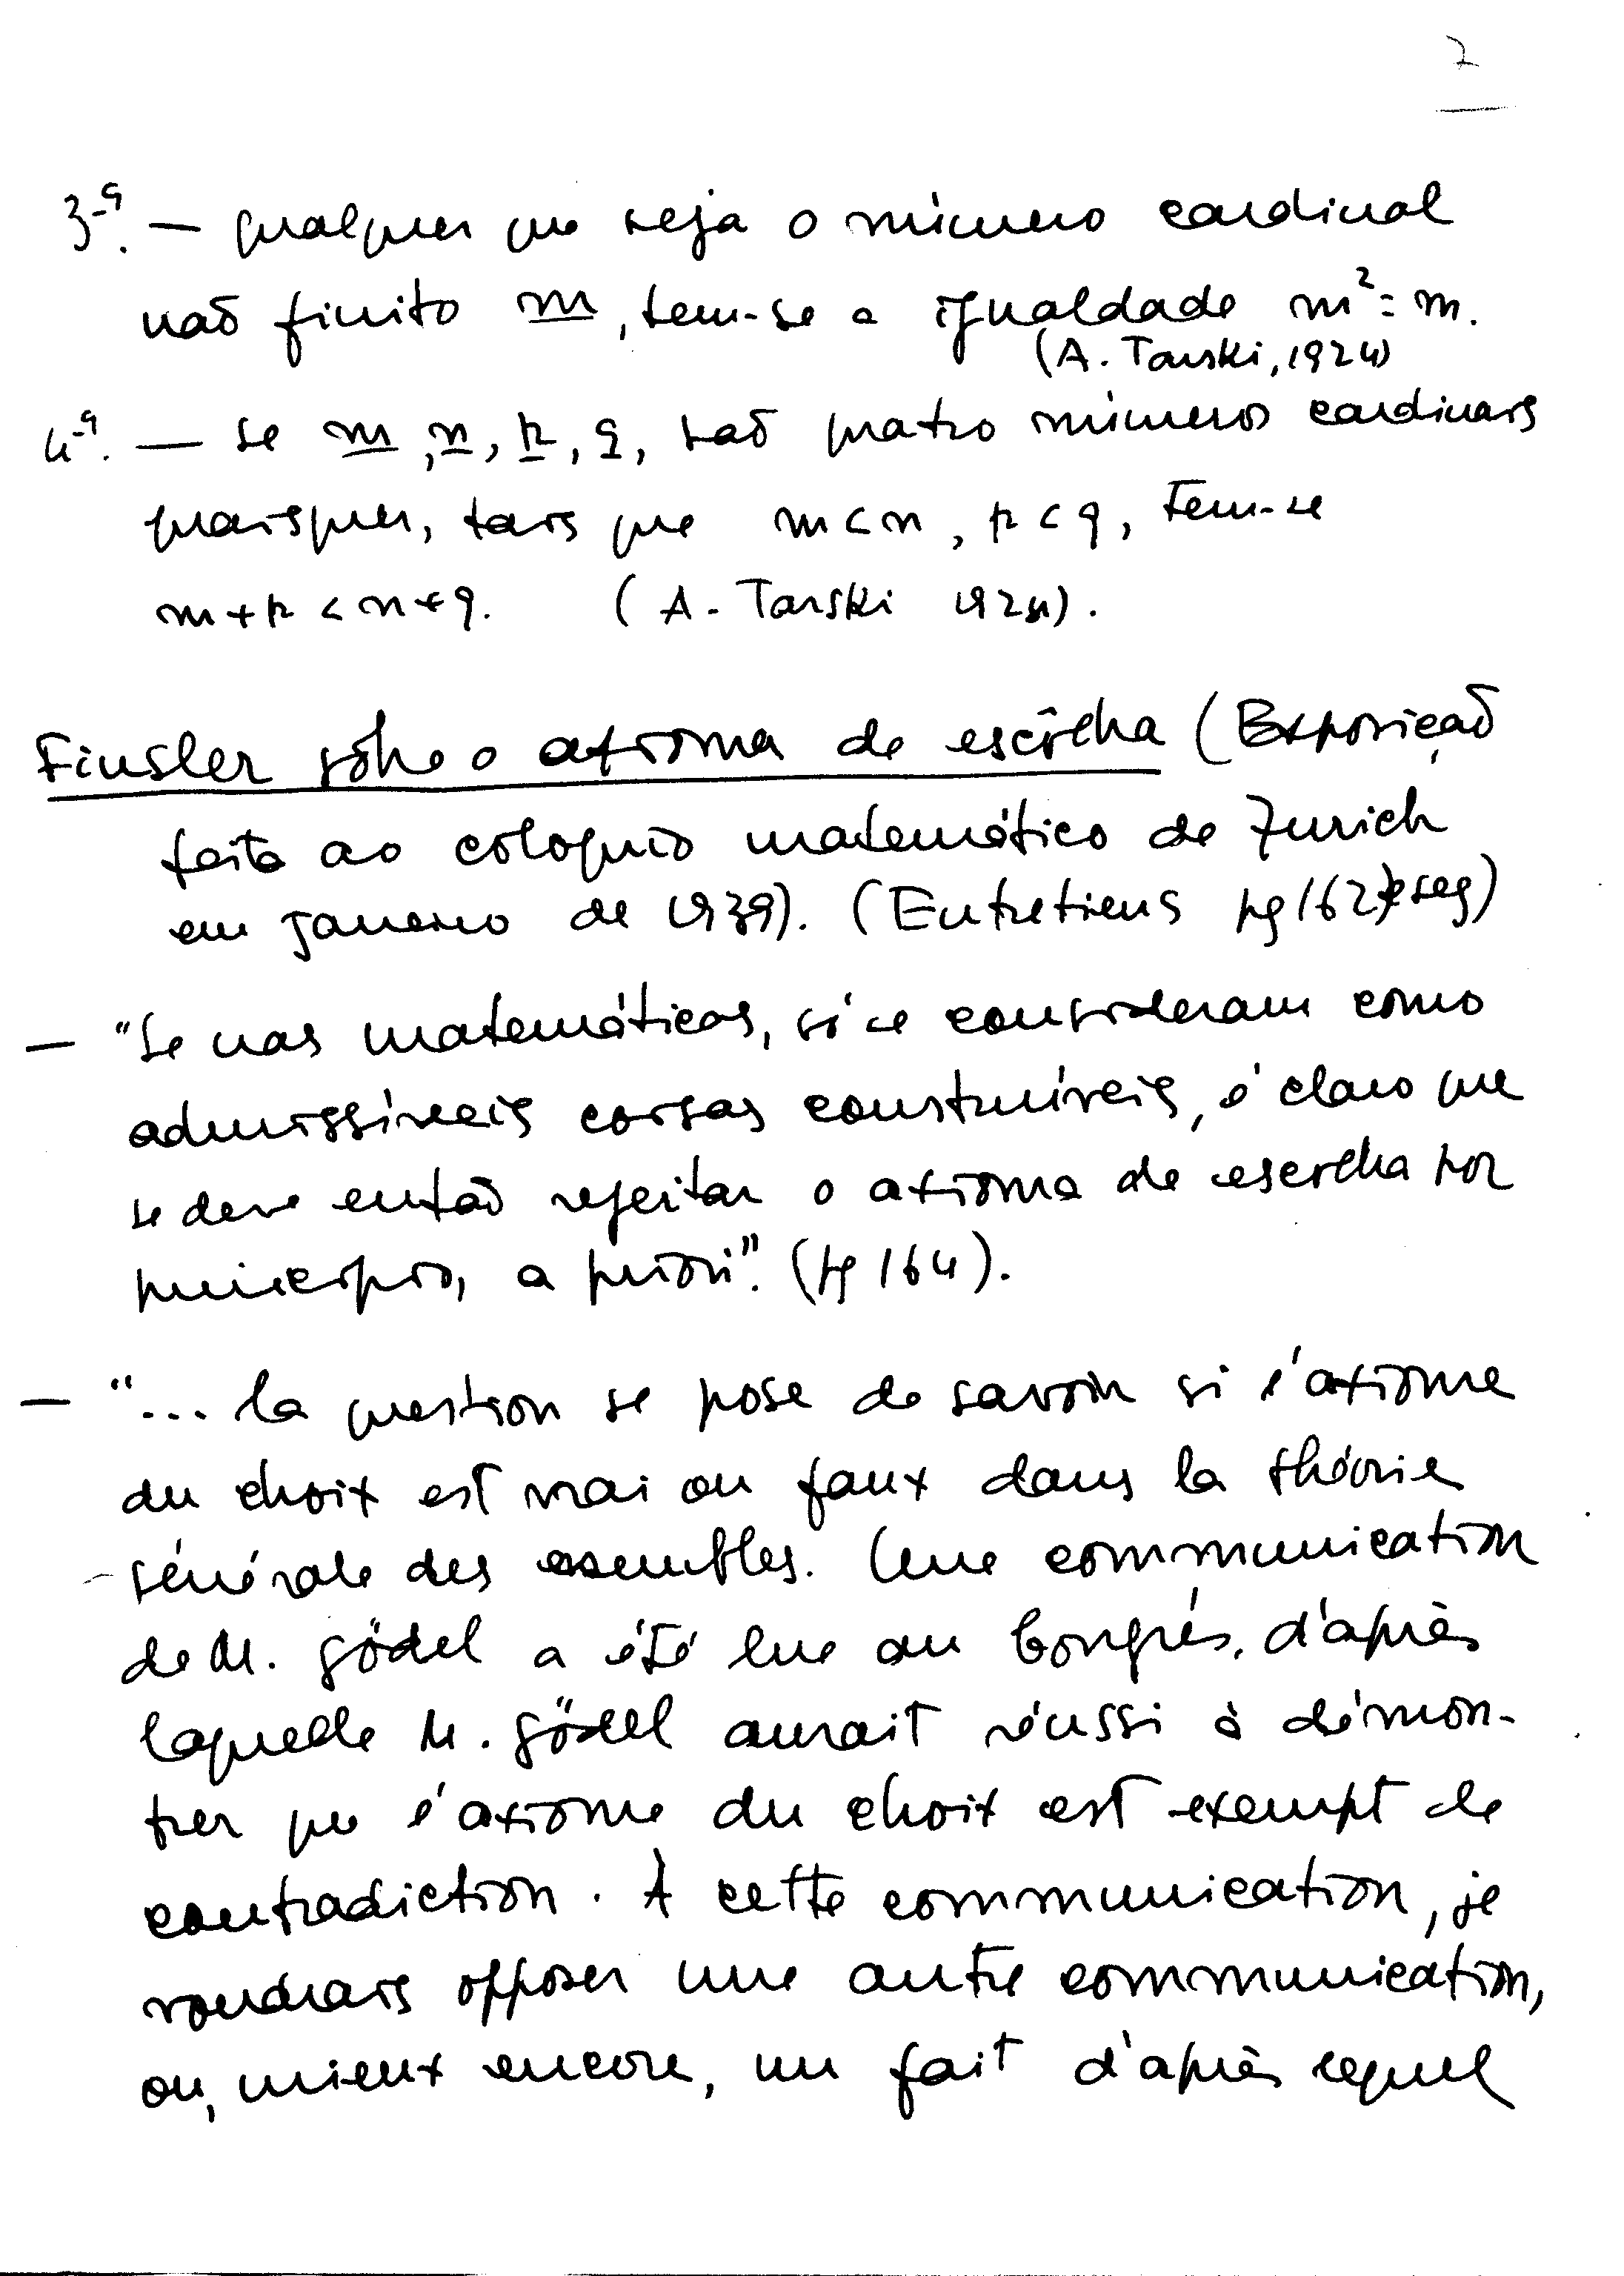 2
3ª. — qualquer que seja o número cardinal
não finito m, tem-se a igualdade m² = m.
(A. Tarski, 1924)
4ª. — se m, n, p, q, são quatro números cardinais
quaisquer, tais que m < n, p < q, tem-se
m + p < n + q. (A. Tarski 1924).
Finsler sôbre o axioma de escôlha (Exposição
feita ao coloquio matemático de Zurich
em janeiro de 1939). (Entretiens pg 162 e seg)
— "Se nas matemáticas, só se consideram como
admissíveis coisas construíveis, é claro que
se deve então rejeitar o axioma de escolha por
principio, a priori". (pg 164).
— "... la question se pose de savoir si l'axiome
du choix est vrai ou faux dans la théorie
générale des ensembles. Une communication
de M. Gödel a été lue au Congrés, d'après
laquelle M. Gödel aurait réussi à démon-
trer que l'axiome du choix est exempt de
contradiction. À cette communication, je
voudrais opposer une autre communication,
ou, mieux encore, un fait d'après lequel